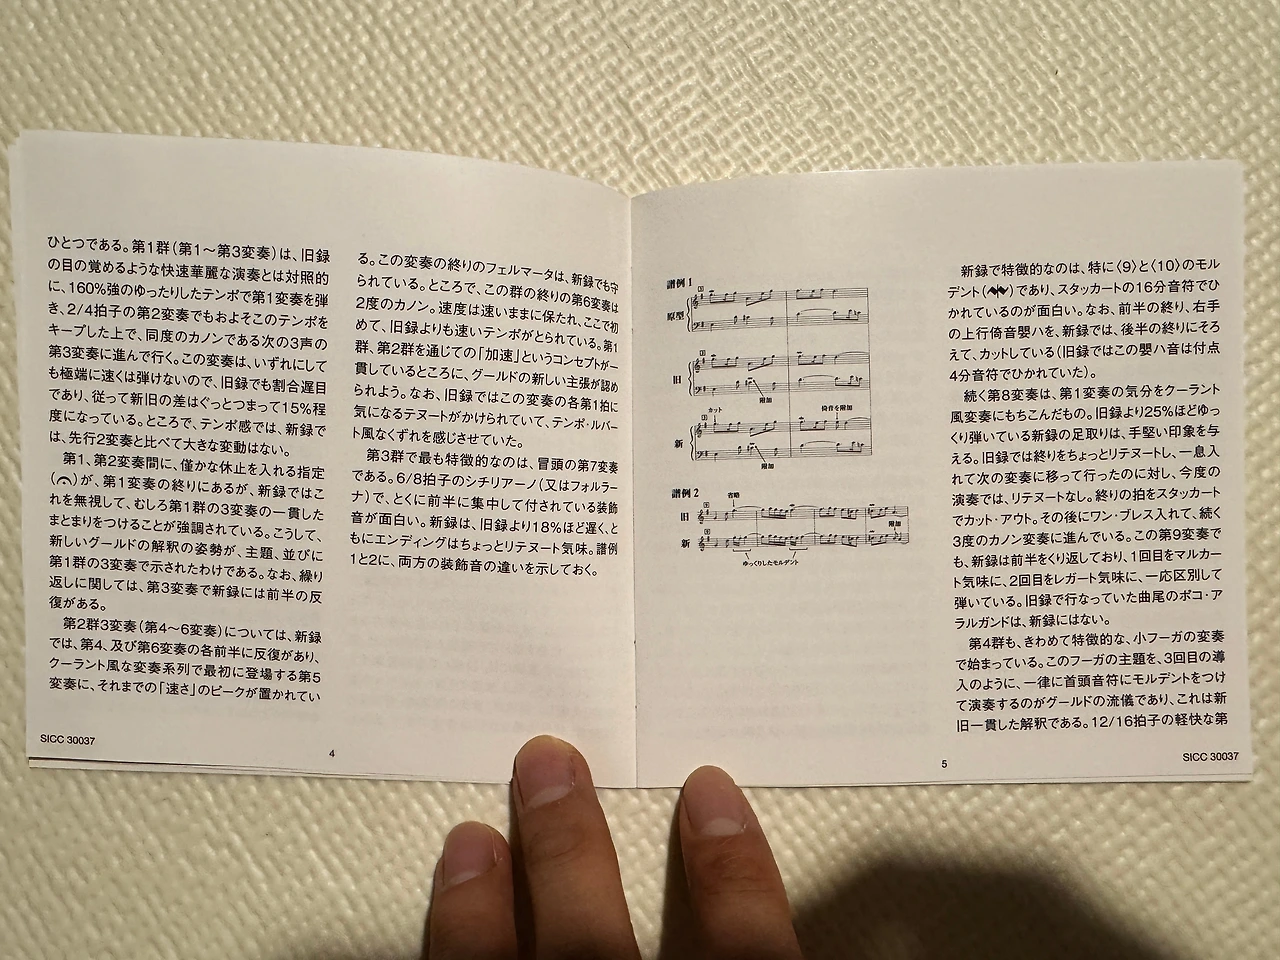 ひとつである。第1群(第1〜第3変奏)は、旧録
の目の覚めるような快速華麗な演奏とは対照的
に、160%強のゆったりしたテンポで第1変奏を弾
き、2/4拍子の第2変奏でもおよそこのテンポを
キープした上で、同度のカノンである次の3声の
第3変奏に進んで行く。この変奏は、いずれにして
も極端に速くは弾けないので、旧録でも割合遅目
であり、従って新旧の差はぐっとつまって15%程
度になっている。ところで、テンポ感では、新録で
は、先行2変奏と比べて大きな変動はない。
　第1、第2変奏間に、僅かな休止を入れる指定
(𝄐)が、第1変奏の終りにあるが、新録ではこ
れを無視して、むしろ第1群の3変奏の一貫した
まとまりをつけることが強調されている。こうして、
新しいグールドの解釈の姿勢が、主題、並びに
第1群の3変奏で示されたわけである。なお、繰り
返しに関しては、第3変奏で新録には前半の反
復がある。
　第2群3変奏(第4〜6変奏)については、新録
では、第4、及び第6変奏の各前半に反復があり、
クーラント風な変奏系列で最初に登場する第5
変奏に、それまでの「速さ」のピークが置かれてい
る。この変奏の終りのフェルマータは、新録でも守
られている。ところで、この群の終りの第6変奏は
2度のカノン。速度は速いままに保たれ、ここで初
めて、旧録よりも速いテンポがとられている。第1
群、第2群を通じての「加速」というコンセプトが一
貫しているところに、グールドの新しい主張が認め
られよう。なお、旧録ではこの変奏の各第1拍に
気になるテヌートがかけられていて、テンポ・ルバー
ト風なくずれを感じさせていた。
　第3群で最も特徴的なのは、冒頭の第7変奏
である。6/8拍子のシチリアーノ(又はフォルラー
ナ)で、とくに前半に集中して付されている装飾
音が面白い。新録は、旧録より18%ほど遅く、と
もにエンディングはちょっとリテヌート気味。譜例
1と2に、両方の装飾音の違いを示しておく。
SICC 30037
4
譜例1
原型
旧
附加
カット
倚音を附加
新
附加
譜例2
省略
旧
附加
新
ゆっくりしたモルデント
　新録で特徴的なのは、特に〈9〉と〈10〉のモル
デント()であり、スタッカートの16分音符でひ
かれているのが面白い。なお、前半の終り、右手
の上行倚音嬰ハを、新録では、後半の終りにそろ
えて、カットしている(旧録ではこの嬰ハ音は付点
4分音符でひかれていた)。
　続く第8変奏は、第1変奏の気分をクーラント
風変奏にもちこんだもの。旧録より25%ほどゆっ
くり弾いている新録の足取りは、手堅い印象を与
える。旧録では終りをちょっとリテヌートし、一息入
れて次の変奏に移って行ったのに対し、今度の
演奏では、リテヌートなし。終りの拍をスタッカート
でカット・アウト。その後にワン・ブレス入れて、続く
3度のカノン変奏に進んでいる。この第9変奏で
も、新録は前半をくり返しており、1回目をマルカー
ト気味に、2回目をレガート気味に、一応区別して
弾いている。旧録で行なっていた曲尾のポコ・ア
ラルガンドは、新録にはない。
　第4群も、きわめて特徴的な、小フーガの変奏
で始まっている。このフーガの主題を、3回目の導
入のように、一律に首頭音符にモルデントをつけ
て演奏するのがグールドの流儀であり、これは新
旧一貫した解釈である。12/16拍子の軽快な第
5
SICC 30037